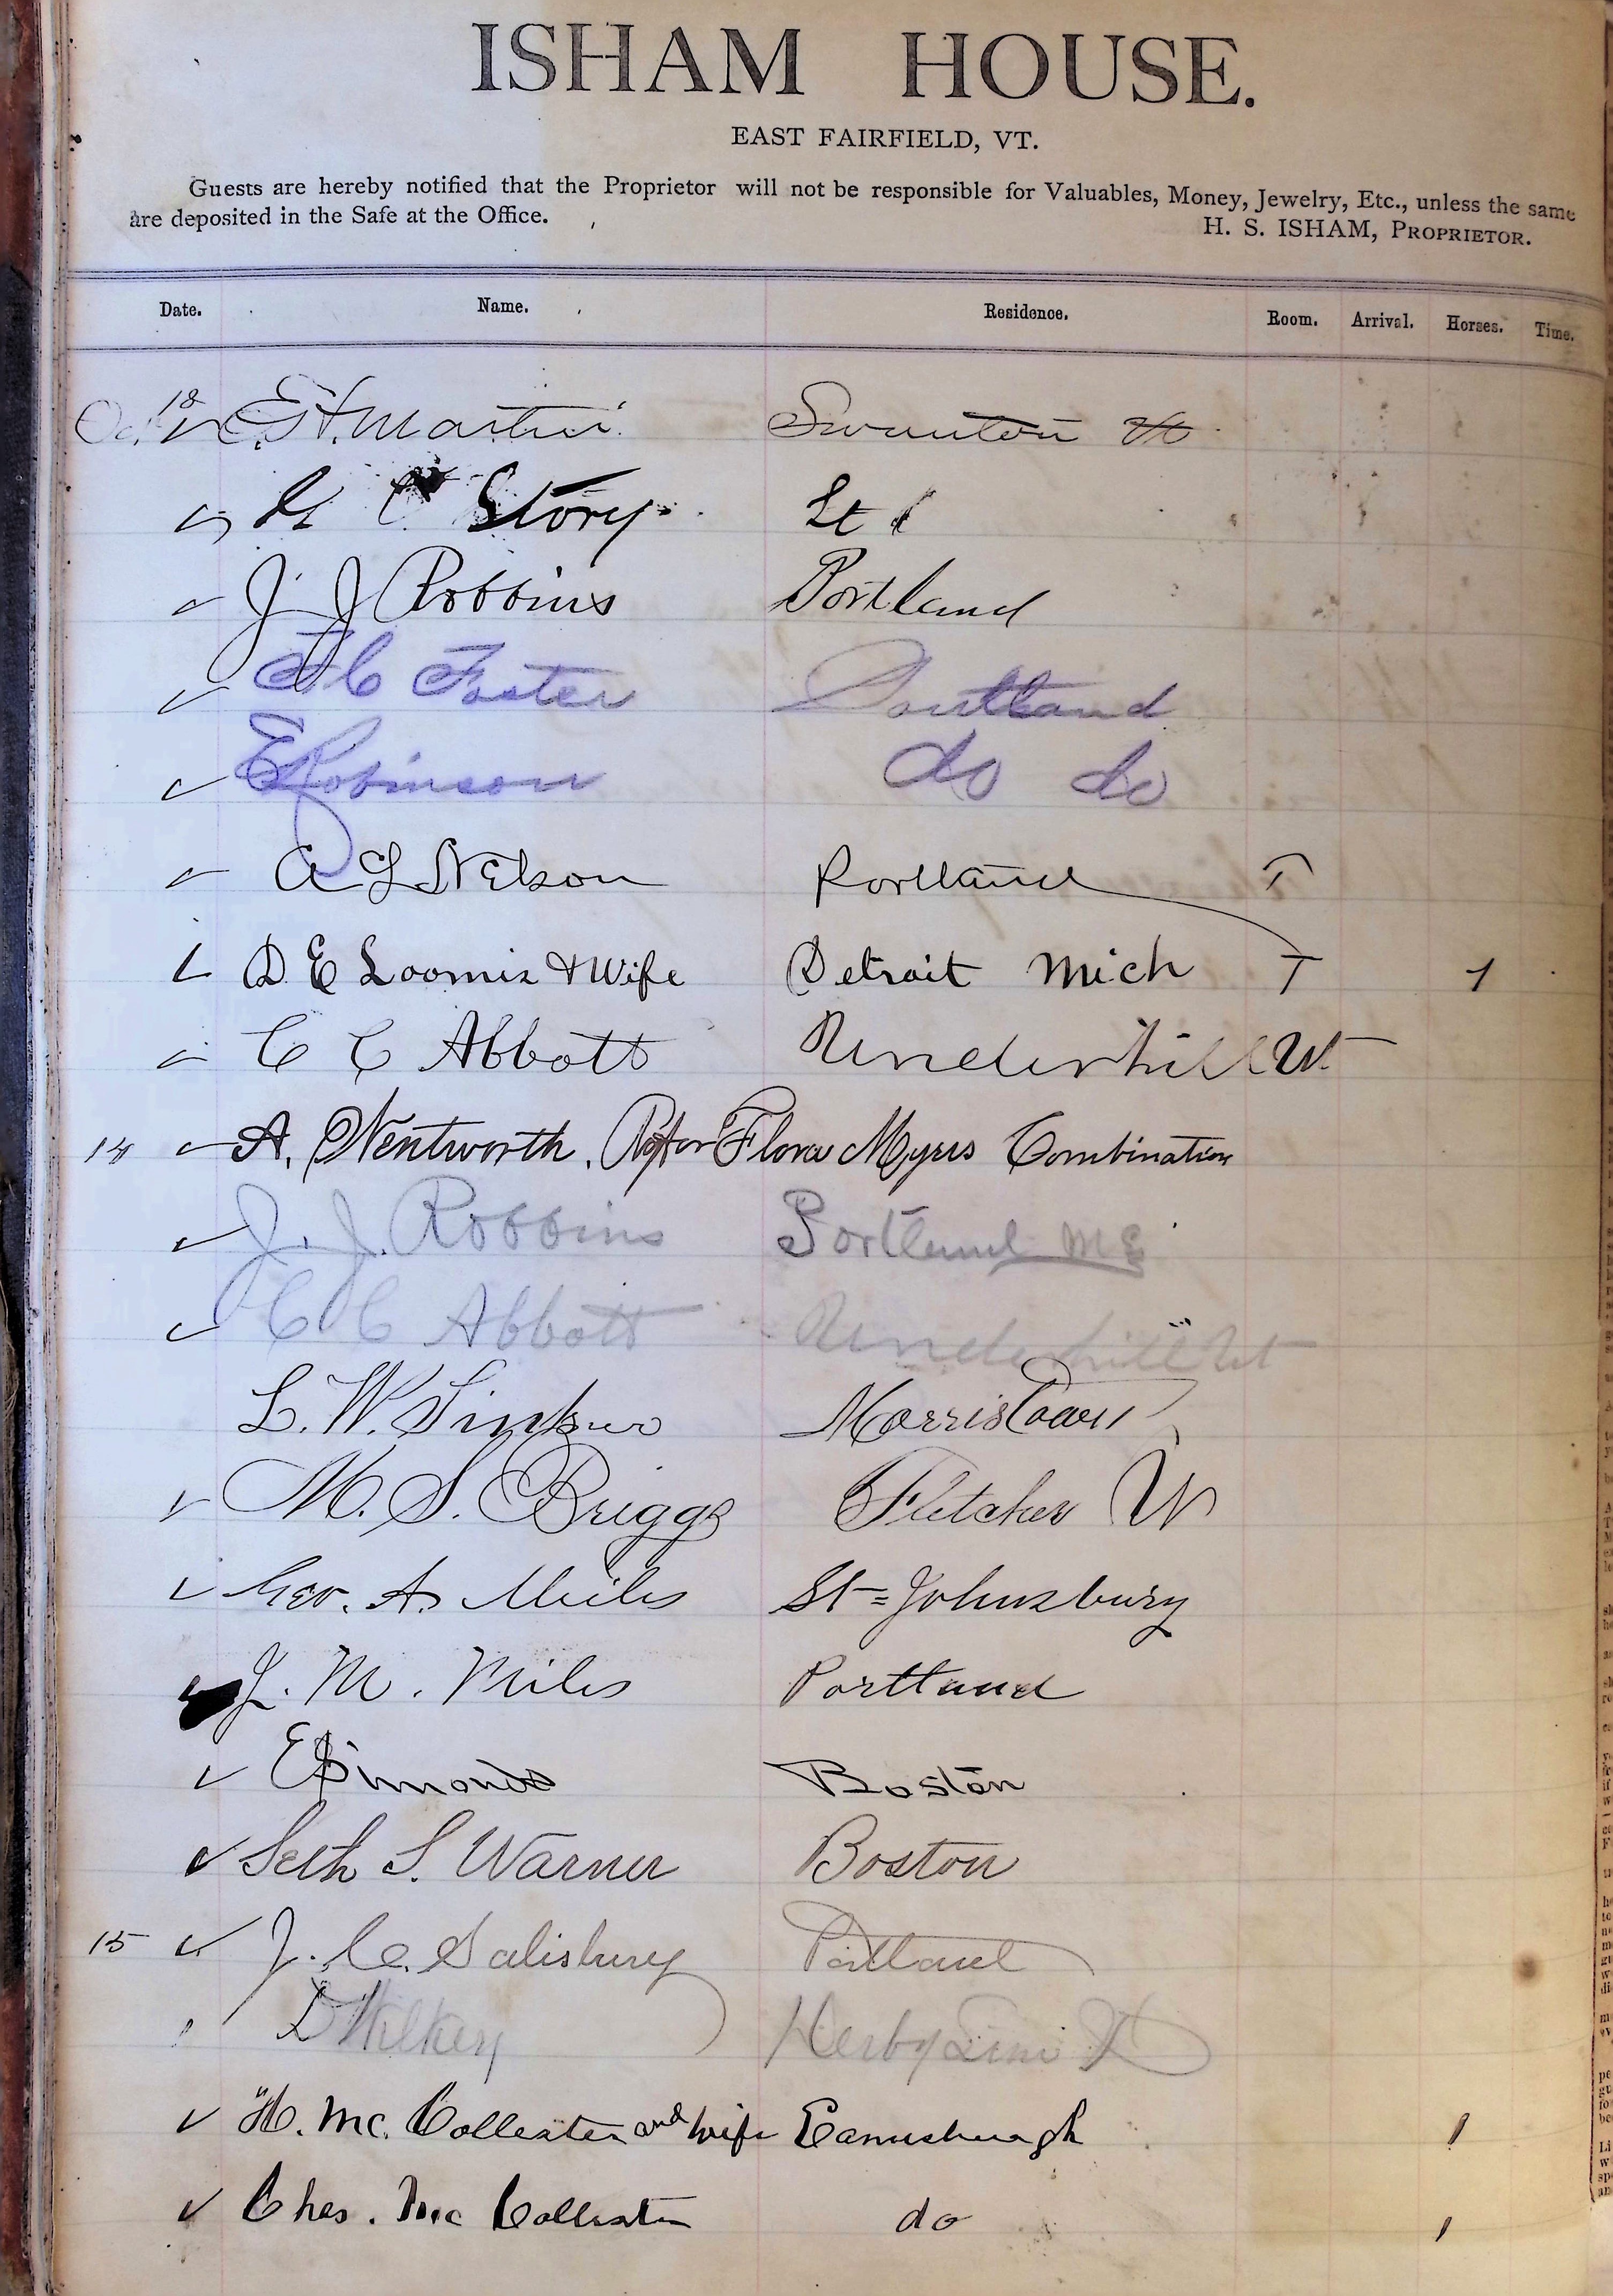 ISHAM HOUSE.
EAST FAIRFIELD, VT.
Guests are hereby notified that the Proprietor will not be responsible for Valuables, Money, Jewelry, Etc., unless the same
are deposited in the Safe at the Office.
H. S. ISHAM, PROPRIETOR.
Date. Name. Residence. Room. Arrival. Horses. Time.
Oct E. H. Martin Swanton Vt
C Story St
J. J Robbins Portland
C Foster Portland
E Robinson do do
A L Nelson Portland T
D E Loomis & Wife Detroit Mich T 1
C C Abbott Underhill Vt
14 A. Wentworth. Flora Myers Combination
J. J. Robbins Portland Me
C C Abbott Underhill Vt
L. W. Morristown
M. S. Briggs Fletcher Vt
Geo. A. Miles St=Johnsbury
J. M. Miles Portland
E Simonds Boston
Seth S. Warner Boston
15 J. C. Salisbury Portland
D Wilkey
H. Mc. Collester and wife 1
Chas. Mc Collester do 1